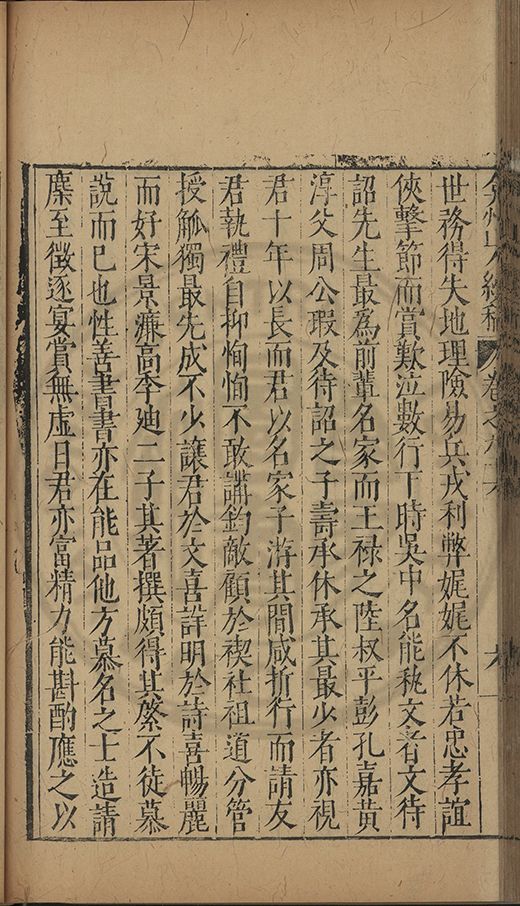 弇州山人續稿 卷之八十六 六
世務得失地理險易兵戎利弊娓娓不休若忠孝誼
俠擊節而賞歎泣數行下時吳中名能秇文者文待
詔先生最爲前輩名家而王祿之陸叔平彭孔嘉黃
淳父周公瑕及待詔之子壽承休承其最少者亦視
君十年以長而君以名家子游其間咸折行而請友
君執禮自抑恂恂不敢講鈞敵顧於禊社祖道分管
授觚獨最先成不少讓君於文喜詳明於詩喜暢麗
而好宋景濂高季廸二子其著撰頗得其槩不徒慕
說而已也性善書書亦在能品他方慕名之士造請
麇至徵逐宴賞無虛日君亦富精力能斟酌應之以